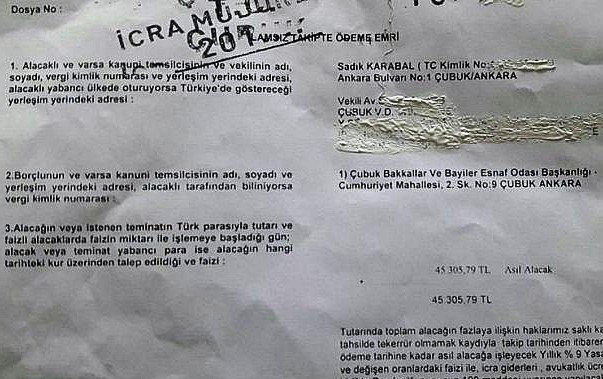 Dosya No :
İCRA MÜDÜR
201
LAMSIZ TAKİPTE ÖDEME EMRİ
1. Alacaklı ve varsa kanuni temsilcisinin ve vekilinin adı,
soyadı, vergi kimlik numarası ve yerleşim yerindeki adresi,
alacaklı yabancı ülkede oturuyorsa Türkiye'de göstereceği
yerleşim yerindeki adresi :
Sadık KARABAL ( TC Kimlik No:
Ankara Bulvarı No:1 ÇUBUK/ANKARA
Vekili Av.
ÇUBUK V.D.
2.Borçlunun ve varsa kanuni temsilcisinin adı, soyadı ve
yerleşim yerindeki adresi, alacaklı tarafından biliniyorsa
vergi kimlik numarası :
1) Çubuk Bakkallar Ve Bayiler Esnaf Odası Başkanlığı -
Cumhuriyet Mahallesi, 2. Sk. No:9 ÇUBUK ANKARA
3.Alacağın veya istenen teminatın Türk parasıyla tutarı ve
faizli alacaklarda faizin miktarı ile işlemeye başladığı gün;
alacak veya teminat yabancı para ise alacağın hangi
tarihteki kur üzerinden talep edildiği ve faizi :
45.305,79 TL Asıl Alacak
45.305,79 TL
Tutarında toplam alacağın fazlaya ilişkin haklarımız saklı ka
tahsilde tekerrür olmamak kaydıyla takip tarihinden itibaren
ödeme tarihine kadar asıl alacağa işleyecek Yıllık % 9 Yasa
ve değişen oranlardaki faizi ile, icra giderleri , avukatlık ücre